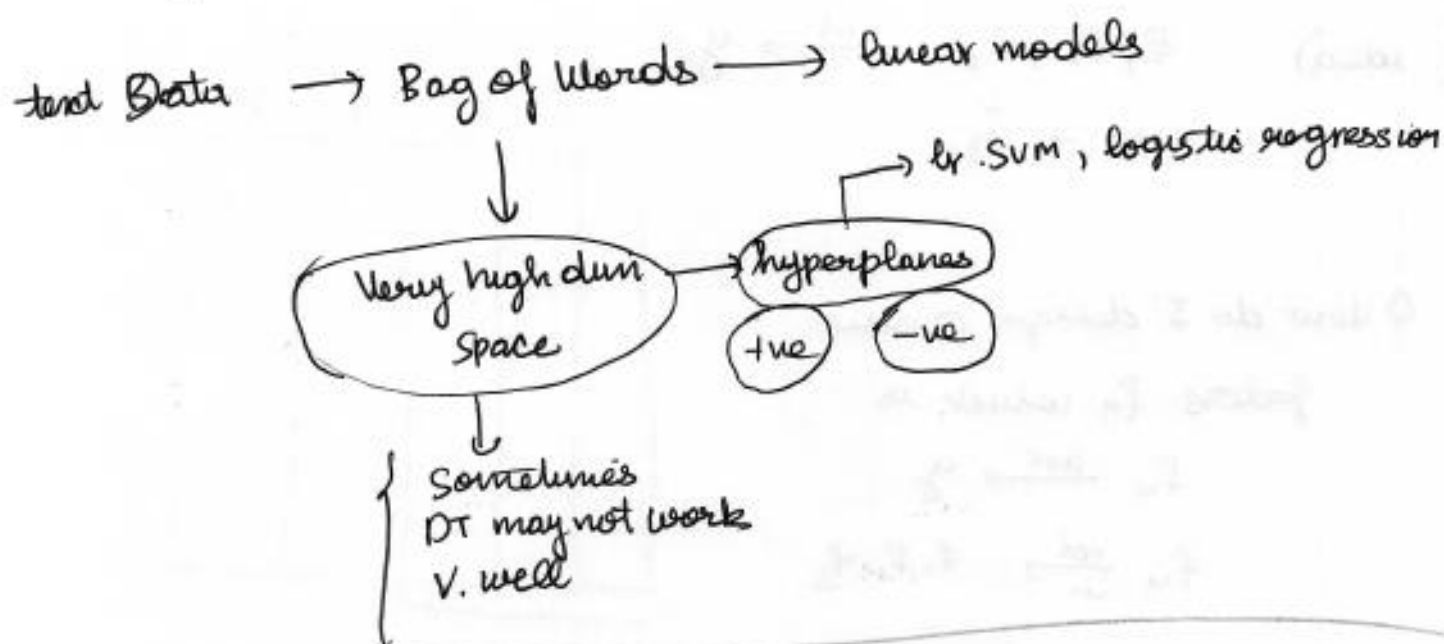 text Data → Bag of Words → linear models
→ lr. SVM, logistic regression
Very high dim → hyperplanes
space
+ve -ve
Sometimes
DT may not work
V. well